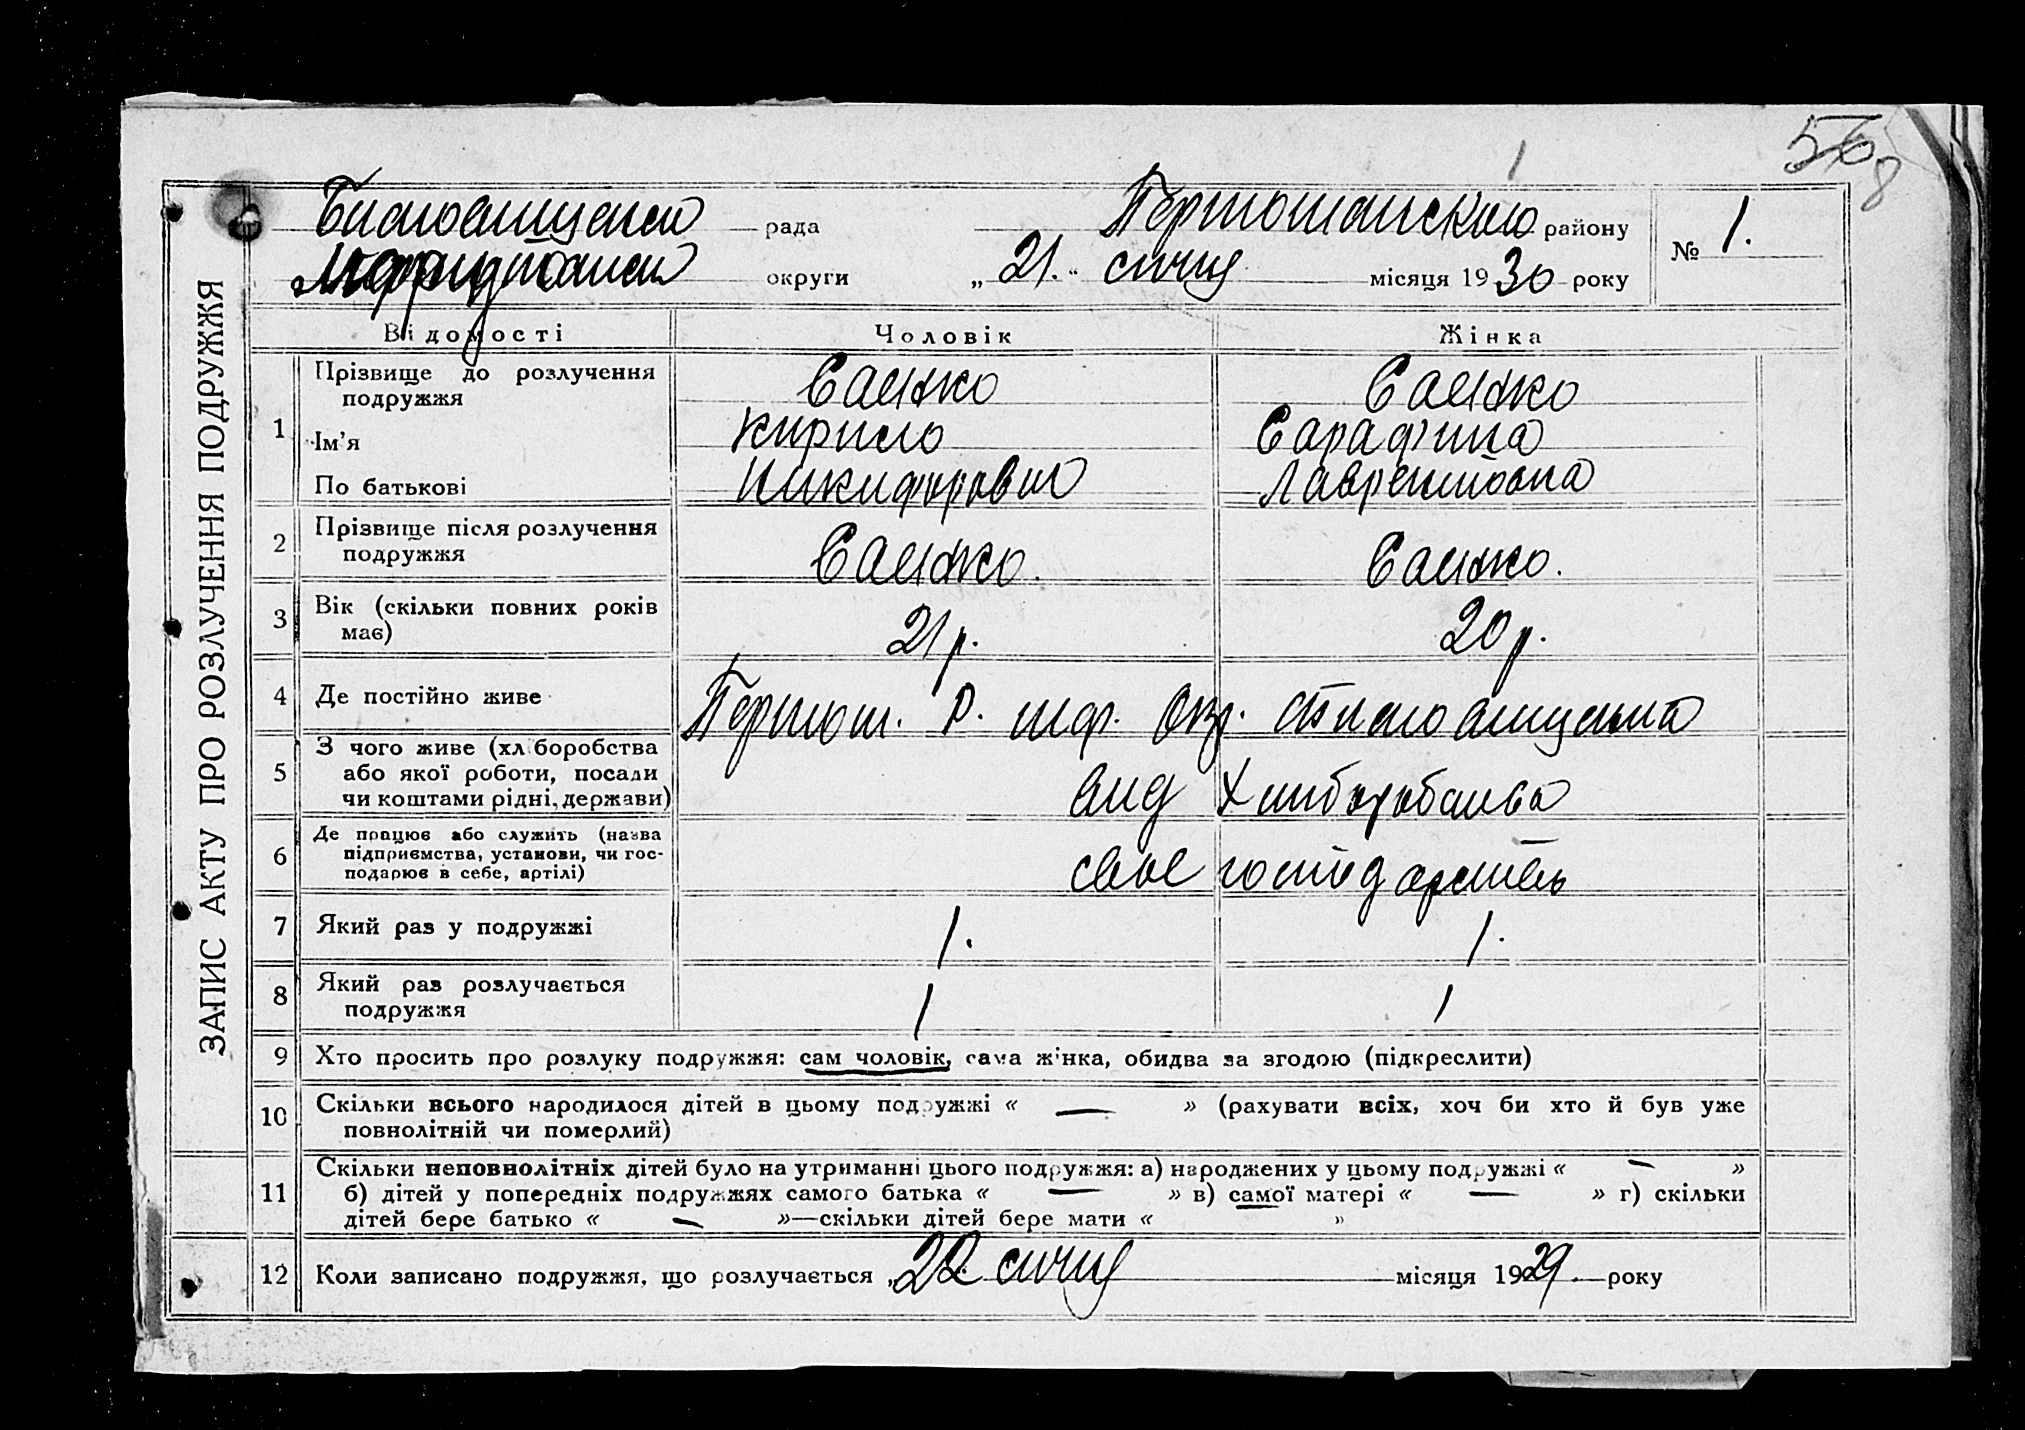 56 8
1
рада
району
№ 1.
округи „21.“ січня місяця 1930 року
ЗАПИС АКТУ ПРО РОЗЛУЧЕННЯ ПОДРУЖЖЯ
Відомості Чоловік Жінка
1 Прізвище до розлучення
подружжя
Саенко Саенко
Ім'я Кирило Сарафина
По батькові Никифорович Лаврентовна
2 Прізвище після розлучення
подружжя
Саенко. Саенко.
3 Вік (скільки повних років
має)
21 р. 20 р.
4 Де постійно живе
Р. Окр.
5 З чого живе (хліборобства
або якої роботи, посади
чи коштами рідні, держави)
від Хліборобства
6 Де працює або служить (назва
підприємства, установи, чи гос-
подарює в себе, артілі)
своє господарство
7 Який раз у подружжі 1. 1.
8 Який раз розлучається
подружжя
1 1
9 Хто просить про розлуку подружжя: сам чоловік, сама жінка, обидва за згодою (підкреслити)
10 Скільки всього народилося дітей в цьому подружжі « — » (рахувати всіх, хоч би хто й був уже
повнолітній чи померлий)
11 Скільки неповнолітніх дітей було на утриманні цього подружжя: а) народжених у цьому подружжі « — »
б) дітей у попередніх подружжях самого батька « — » в) самої матері « — » г) скільки
дітей бере батько « — »—скільки дітей бере мати « »
12 Коли записано подружжя, що розлучається „22 січня місяця 1929. року